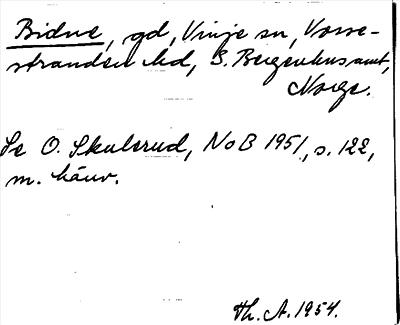 Bidne, gd, Vinje sn, Vosse-
stranden hd, S. Bergenhus amt,
Norge.
Se O. Skulerud, NoB 1951, s. 122,
m. hänv.
Th. A. 1954.